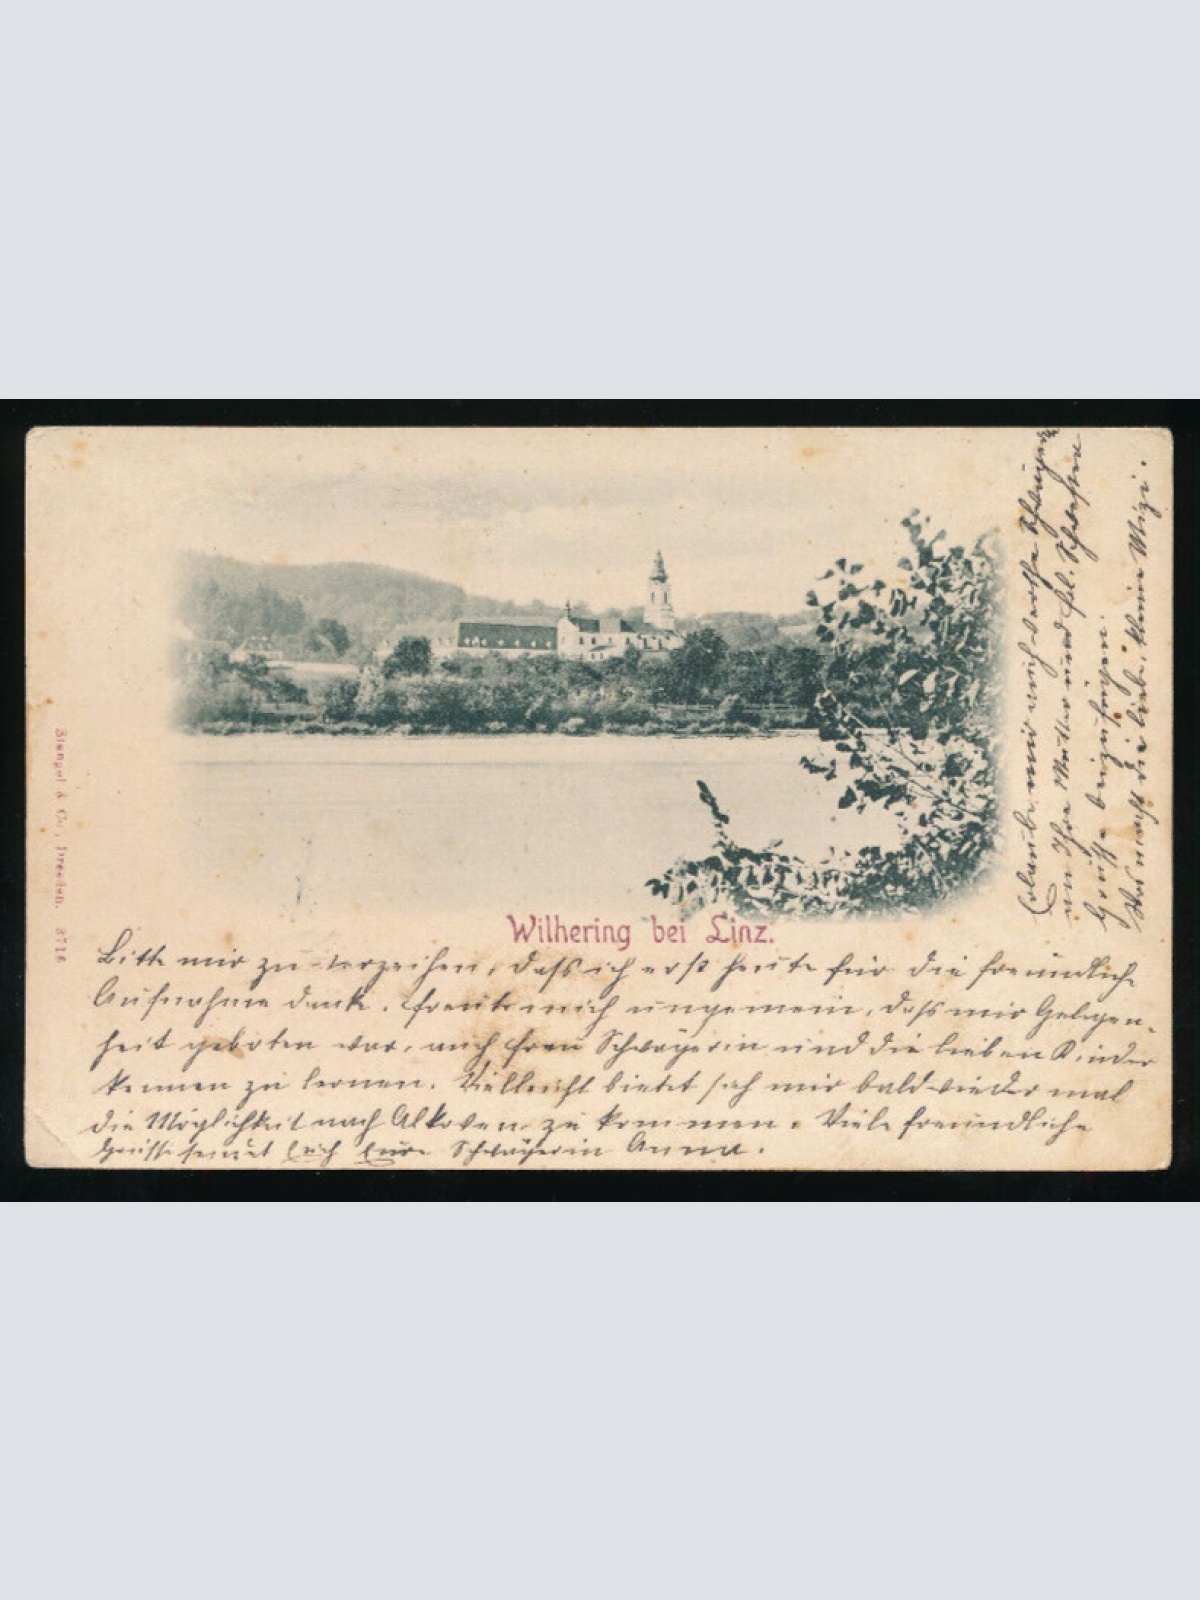 Wilhering bei Linz.
Stengel & Co., Dresden. 3716
Bitte mir zu verzeihen, dass ich erst heute für die freundliche
Aufnahme danke. Freute mich ungemein, dass mir Gelegen-
heit geboten war, auch Frau Schwägerin und die lieben Kinder
kennen zu lernen. Vielleicht bietet sich mir bald wieder mal
die Möglichkeit nach Alkoven zu kommen. Viele freundliche
Grüsse sendet Euch Eure Schwägerin Anna.
Erlaube mir auch werthe
an Ihre Mutter und frl. Schwester
Grüsse beizufügen.
Was macht die liebe, kleine Mizi.